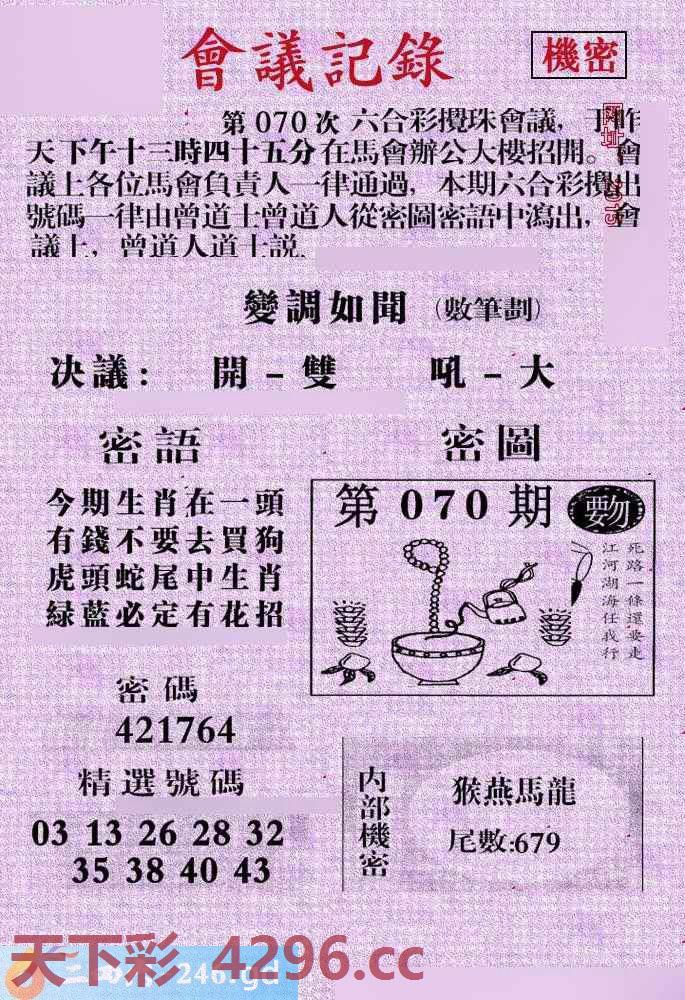 會議記錄
機密
第070次 六合彩攪珠會議，于昨
天下午十三時四十五分在馬會辦公大樓招開。會
議上各位馬會負責人一律通過，本期六合彩攪出
號碼一律由曾道士曾道人從密圖密語中瀉出，會
議上，曾道人道士説
變調如聞（數筆劃）
决議： 開－雙 吼－大
密語
今期生肖在一頭
有錢不要去買狗
虎頭蛇尾中生肖
緑藍必定有花招
密圖
第070期
死路一條還要走
江河湖海任我行
密碼
421764
精選號碼
03 13 26 28 32
35 38 40 43
内部機密
猴燕馬龍
尾數:679
天下彩 4296.cc
246.gd